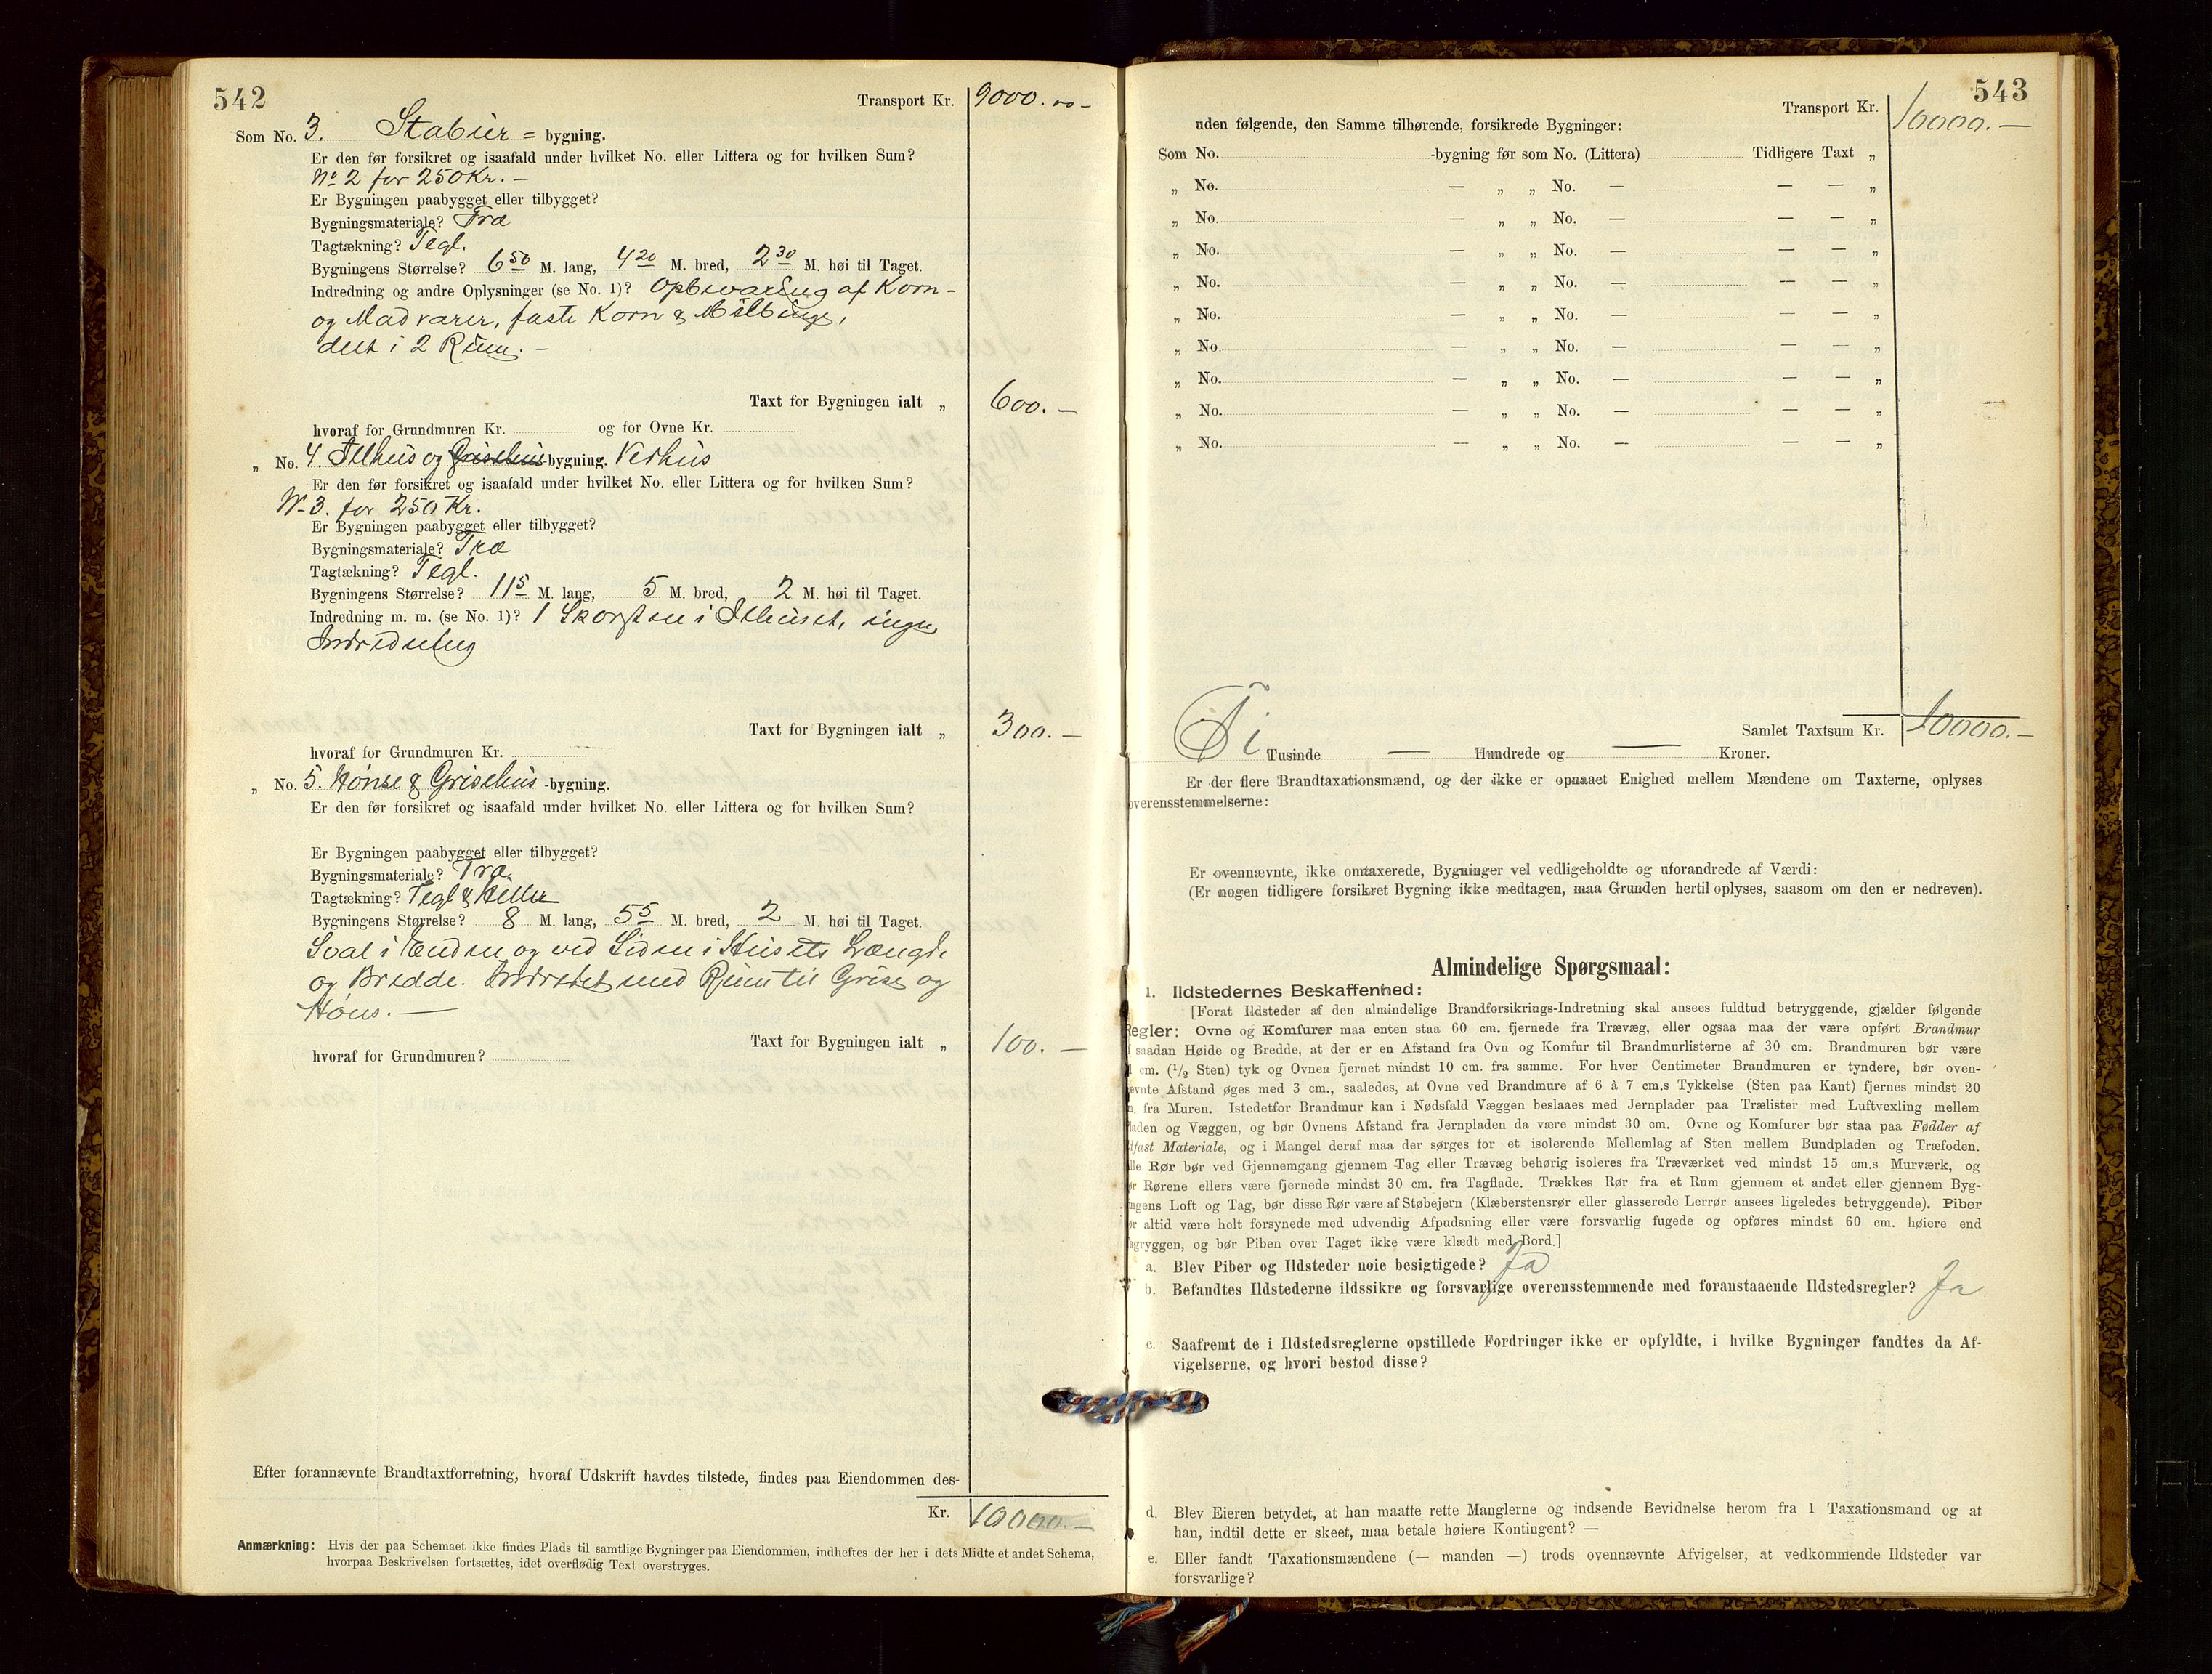 542
Transport Kr. 9000.00-
Som No. 3. Stabur = bygning.
Er den før forsikret og isaafald under hvilket No. eller Littera og for hvilken Sum?
No 2 for 250 Kr. -
Er Bygningen paabygget eller tilbygget?
Bygningsmateriale? Træ
Tagtækning? Tegl.
Bygningens Størrelse? 6 50 M. lang, 4 20 M. bred, 2 30 M. høi til Taget.
Indredning og andre Oplysninger (se No. 1)? Opbevaring af Korn-
og Madvarer, faste Korn & Mælbinge,
delt i 2 Rum. -
Taxt for Bygningen ialt „ 600. -
hvoraf for Grundmuren Kr. og for Ovne Kr.
„ No. 4. Ilhus og Grisehus-bygning. Vedhus
Er den før forsikret og isaafald under hvilket No. eller Littera og for hvilken Sum?
No 3. for 250 Kr.
Er Bygningen paabygget eller tilbygget?
Bygningsmateriale? Træ
Tagtækning? Tegl.
Bygningens Størrelse? 11 5 M. lang, 5 M. bred, 2 M. høi til Taget.
Indredning m. m. (se No. 1)? 1 Skorsten i Ilhuset, ingen
Indredning
Taxt for Bygningen ialt „ 300. -
hvoraf for Grundmuren Kr.
„ No. 5. Hønse & Grisehus -bygning.
Er den før forsikret og isaafald under hvilket No. eller Littera og for hvilken Sum?
Er Bygningen paabygget eller tilbygget?
Bygningsmateriale? Træ.
Tagtækning? Tegl & Heller
Bygningens Størrelse? 8 M. lang, 5 5 M. bred, 2 M. høi til Taget.
Sval i Enden og ved Siden i Husets Længde
og Bredde. Indredet med Rum til Grise og
Høns. —
Taxt for Bygningen ialt „ 100. -
hvoraf for Grundmuren?
Efter forannævnte Brandtaxtforretning, hvoraf Udskrift havdes tilstede, findes paa Eiendommen des-
Kr. 10000. -
Anmærkning: Hvis der paa Schemaet ikke findes Plads til samtlige Bygninger paa Eiendommen, indheftes der her i dets Midte et andet Schema,
hvorpaa Beskrivelsen fortsættes, idet overflødig Text overstryges.
543
Transport Kr. 10000. -
uden følgende, den Samme tilhørende, forsikrede Bygninger:
Som No. -bygning før som No. (Littera) Tidligere Taxt „
„ No. — „ „ No. — — — „
„ No. — „ „ No. — — — „
„ No. — „ „ No. — — — „
„ No. — „ „ No. — — — „
„ No. — „ „ No. — — — „
„ No. — „ „ No. — — — „
„ No. — „ „ No. — — — „
„ No. — „ „ No. — — — „
„ No. — „ „ No. — — — „
Samlet Taxtsum Kr. 10000. -
Ti Tusinde — Hundrede og — Kroner.
Er der flere Brandtaxationsmænd, og der ikke er opnaaet Enighed mellem Mændene om Taxterne, oplyses
overensstemmelserne:
Er ovennævnte, ikke omtaxerede, Bygninger vel vedligeholdte og uforandrede af Værdi:
(Er nogen tidligere forsikret Bygning ikke medtagen, maa Grunden hertil oplyses, saasom om den er nedreven).
Almindelige Spørgsmaal:
1. Ildstedernes Beskaffenhed:
[Forat Ildsteder af den almindelige Brandforsikrings-Indretning skal ansees fuldtud betryggende, gjælder følgende
Regler: Ovne og Komfurer maa enten staa 60 cm. fjernede fra Trævæg, eller ogsaa maa der være opført Brandmur
f saadan Høide og Bredde, at der er en Afstand fra Ovn og Komfur til Brandmurlisterne af 30 cm. Brandmuren bør være
cm. (1/2 Sten) tyk og Ovnen fjernet mindst 10 cm. fra samme. For hver Centimeter Brandmuren er tyndere, bør oven-
ævnte Afstand øges med 3 cm., saaledes, at Ovne ved Brandmure af 6 à 7 cm.s Tykkelse (Sten paa Kant) fjernes mindst 20
. fra Muren. Istedetfor Brandmur kan i Nødsfald Væggen beslaaes med Jernplader paa Trælister med Luftvexling mellem
laden og Væggen, og bør Ovnens Afstand fra Jernpladen da være mindst 30 cm. Ovne og Komfurer bør staa paa Fødder af
dfast Materiale, og i Mangel deraf maa der sørges for et isolerende Mellemlag af Sten mellem Bundpladen og Træfoden.
lle Rør bør ved Gjennemgang gjennem Tag eller Trævæg behørig isoleres fra Træværket ved mindst 15 cm.s Murværk, og
ør Rørene ellers være fjernede mindst 30 cm. fra Tagflade. Trækkes Rør fra et Rum gjennem et andet eller gjennem Byg-
ngens Loft og Tag, bør disse Rør være af Støbejern (Klæberstensrør eller glasserede Lerrør ansees ligeledes betryggende). Piber
ør altid være helt forsynede med udvendig Afpudsning eller være forsvarlig fugede og opføres mindst 60 cm. høiere end
agryggen, og bør Piben over Taget ikke være klædt med Bord.]
a. Blev Piber og Ildsteder nøie besigtigede? Ja
b. Befandtes Ildstederne ildssikre og forsvarlige overensstemmende med foranstaaende Ildstedsregler? Ja
c. Saafremt de i Ildstedsreglerne opstillede Fordringer ikke er opfyldte, i hvilke Bygninger fandtes da Af-
vigelserne, og hvori bestod disse?
d. Blev Eieren betydet, at han maatte rette Manglerne og indsende Bevidnelse herom fra 1 Taxationsmand og at
han, indtil dette er skeet, maa betale høiere Kontingent? —
e. Eller fandt Taxationsmændene (— manden —) trods ovennævnte Afvigelser, at vedkommende Ildsteder var
forsvarlige?